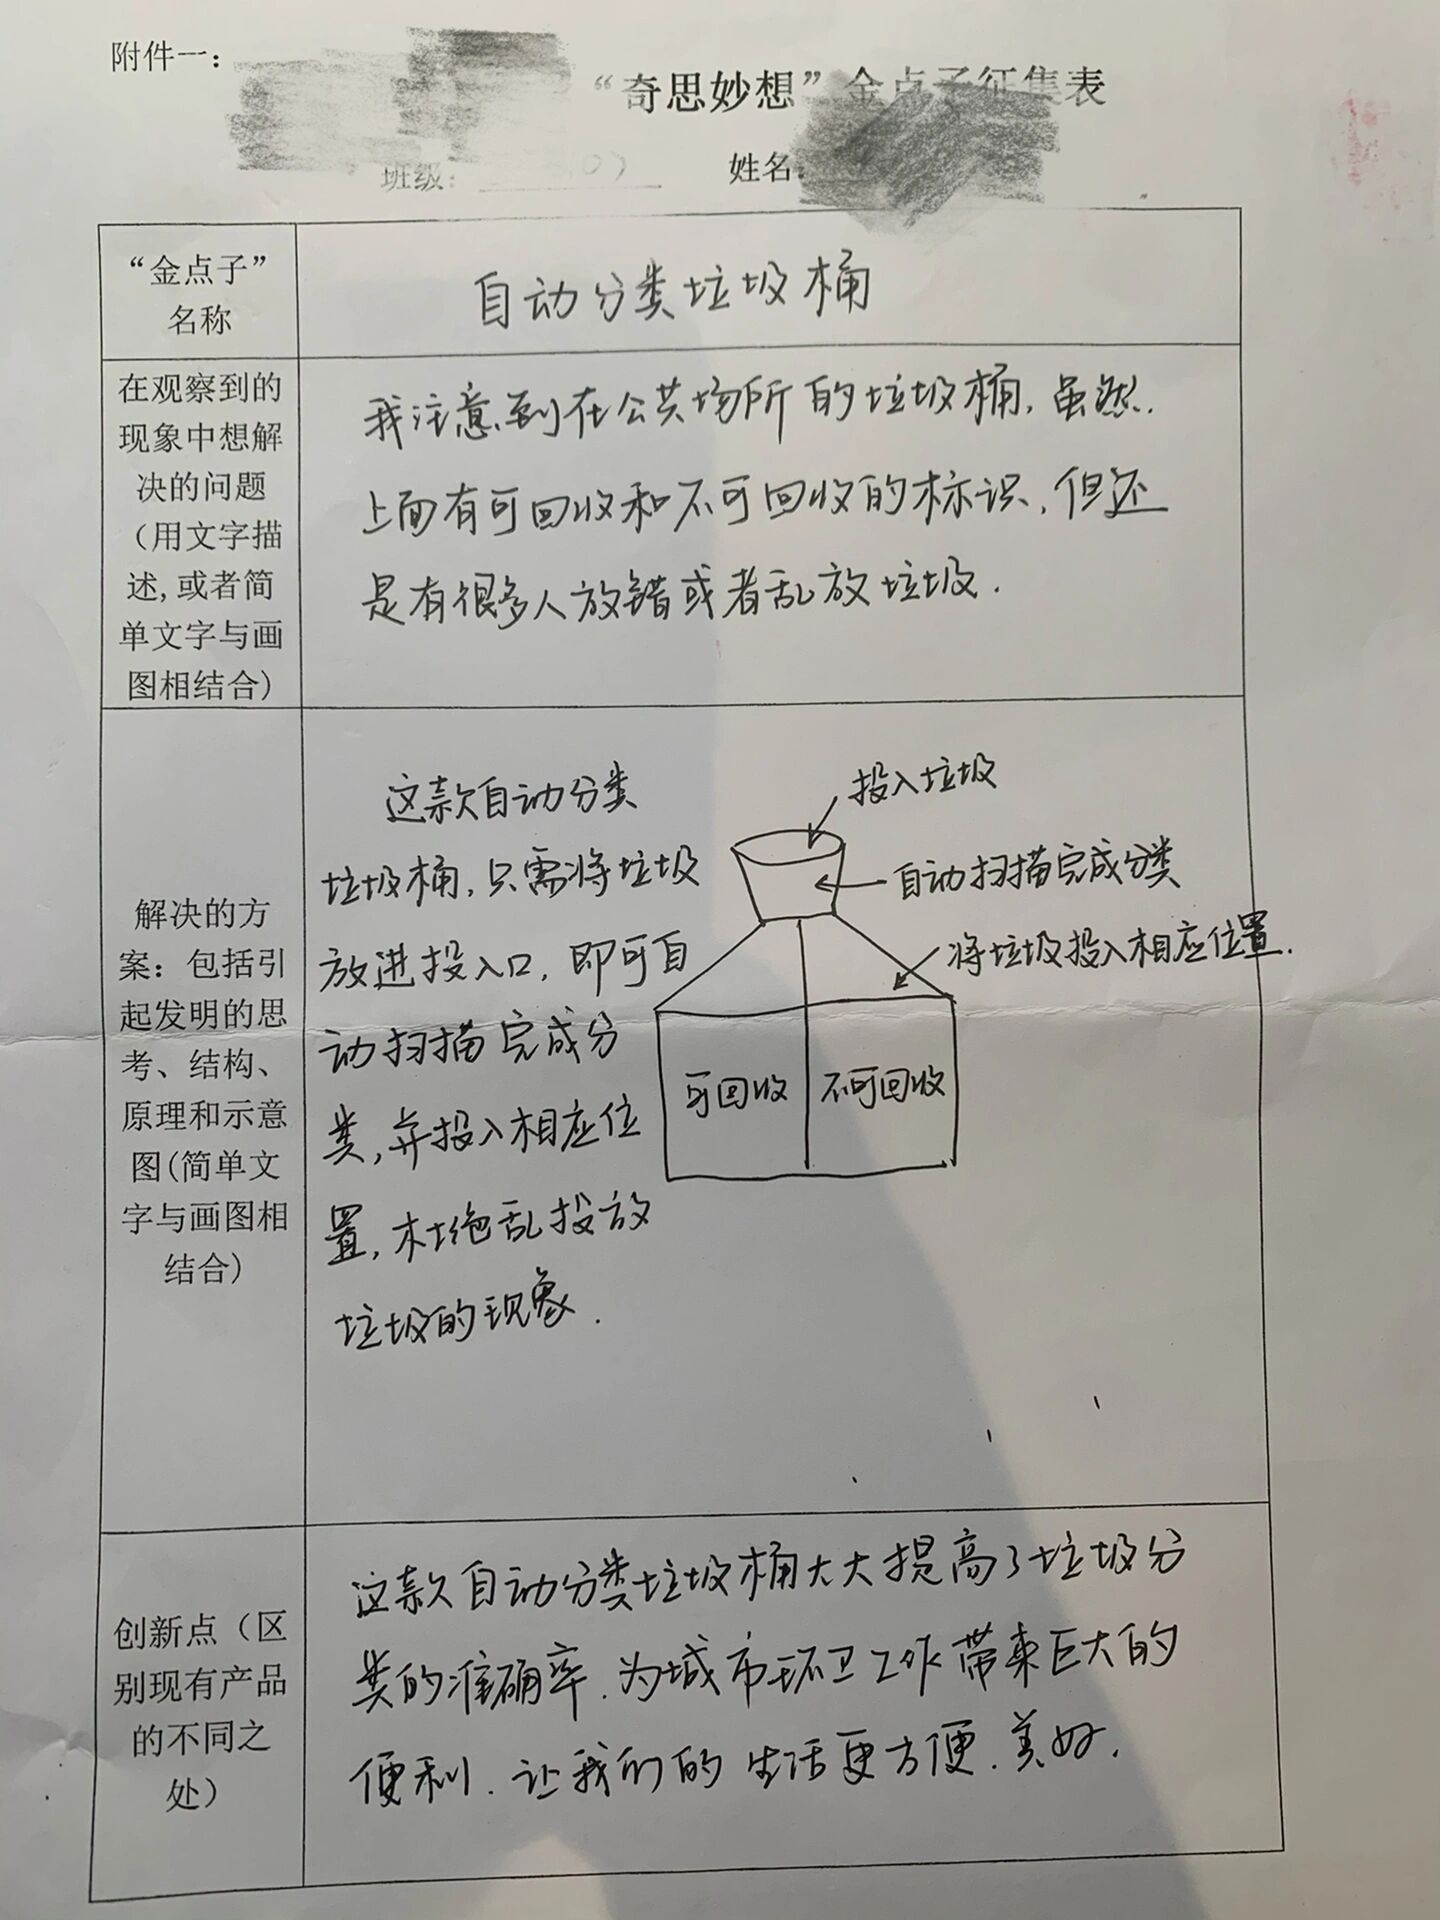 附件一：
“奇思妙想”金点子征集表
班级： 姓名：
“金点子”
名称
自动分类垃圾桶
在观察到的
现象中想解
决的问题
（用文字描
述,或者简
单文字与画
图相结合）
我注意到在公共场所的垃圾桶,虽然
上面有可回收和不可回收的标识,但还
是有很多人放错或者乱放垃圾.
解决的方
案：包括引
起发明的思
考、结构、
原理和示意
图(简单文
字与画图相
结合)
这款自动分类
垃圾桶,只需将垃圾
放进投入口,即可自
动扫描完成分
类,并投入相应位
置,杜绝乱投放
垃圾的现象.
投入垃圾
自动扫描完成分类
将垃圾投入相应位置.
可回收
不可回收
创新点（区
别现有产品
的不同之
处）
这款自动分类垃圾桶大大提高了垃圾分
类的准确率.为城市环卫工作带来巨大的
便利.让我们的生活更方便.美好.